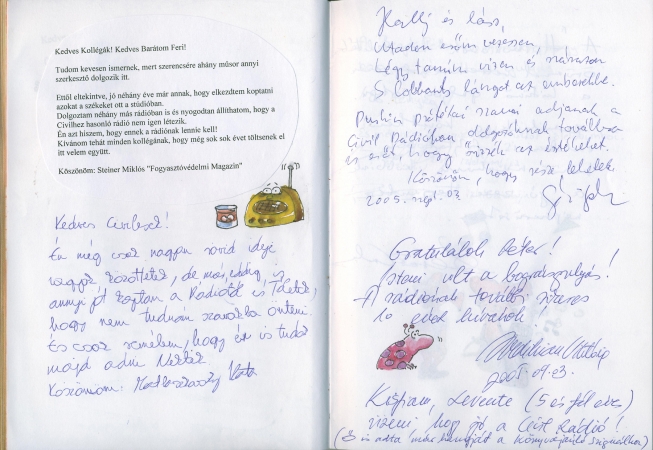 Kedves Kollégák! Kedves Barátom Feri!
Tudom kevesen ismernek, mert szerencsére ahány műsor annyi
szerkesztő dolgozik itt.
Ettől eltekintve, jó néhány éve már annak, hogy elkezdtem koptatni
azokat a székeket ott a stúdióban.
Dolgoztam néhány más rádióban is és nyogodtan állíthatom, hogy a
Civilhez hasonló rádió nem igen létezik.
Én azt hiszem, hogy ennek a rádiónak lennie kell!
Kívánom tehát minden kollégának, hogy még sok sok évet töltsenek el
itt velem együtt.
Köszönöm: Steiner Miklós "Fogyasztóvédelmi Magazin"
Kedves Civilesek!
Én még csak nagyon rövid ideje
vagyok közöttetek, de már eddig is
annyi jót kaptam a Rádiótól és Tőletek,
hogy nem tudnám szavakba önteni.
És csak remélem, hogy én is tudok
majd adni Nektek
Köszönöm: Kata
Hallj és láss,
Légy tanúm vizen és szárazon
S lobbants lángot az emberekbe.
Puskin szavai adjanak a
Civil Rádióban dolgozóknak továbbra
is erőt, hogy őrizzék az értékeket.
Köszönöm, hogy része lehetek
2005. szept. 03.
Gratulálok
volt a bográcsgulyás!
A rádiónak további sikeres
10 évet kívánok!
2005. 09. 03.
Kisfiam, Levente (5 és fél éves)
üzeni hogy jó a Civil Rádió!